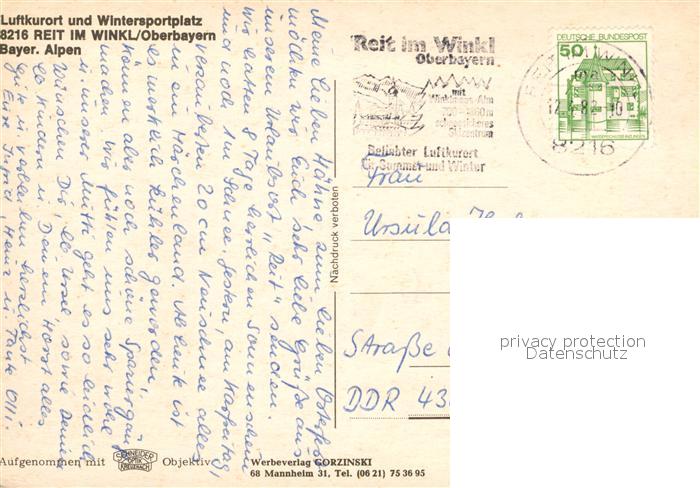 Luftkurort und Wintersportplatz
8216 REIT IM WINKL/Oberbayern
Bayer. Alpen
Meine lieben Hähne, zum lieben Osterfest
möchten wir Euch sehr liebe Grüße aus
unserem Urlaubsort „Reit" senden.
Wir hatten 8 Tage herrlichen Sonnenschein
und noch 1 m Schnee. Gestern, am Karfreitag,
20 cm Neuschnee alles
in ein Märchenland. Ab heute ist
es merklich kühler geworden,
können aber noch schöne Spaziergänge
machen. Wir fühlen uns sehr wohl
unserer Mutti geht es so leidlich
Wünschen Dir, lb. Ursel, sowie Deinen
lb. Kindern u. Deinem Horst alles
Gute u. verbleiben herzlichst
Eure Ingrid, Heinz u. Tante Olli
Nachdruck verboten
Reit im Winkl
Oberbayern
mit
Winklmoos-Alm
Skizentrum
Beliebter Luftkurort
für Sommer und Winter
DEUTSCHE BUNDESPOST
50
8216
Frau
Ursula
Straße
DDR
privacy protection
Datenschutz
Aufgenommen mit SCHNEIDER OPTIK KREUZNACH Objektiv
Werbeverlag GORZINSKI
68 Mannheim 31, Tel. (06 21) 75 36 95